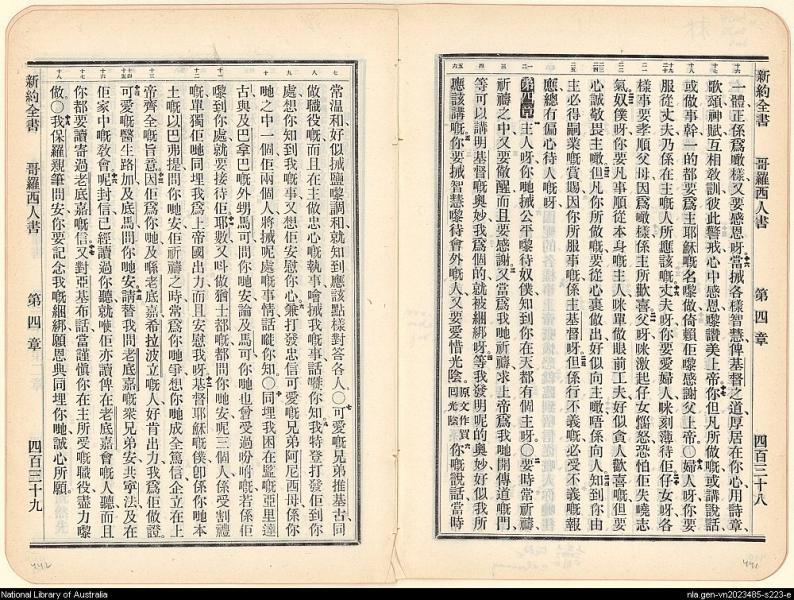 新約全書 哥羅西人書 第四章 四百三十八
一體正係爲噉樣又要感恩呀當揻各樣智慧俾基督之道厚居在你心用詩章
歌頌神賦互相教訓彼此警戒心中感恩嚟讚美上帝你但凡所做嘅或講說話
或做事幹一的都要爲主耶穌嘅名嚟做倚賴佢嚟感謝父上帝〇婦人呀你要
服從丈夫乃係在主嘅人所應該嘅丈夫呀你要愛婦人咪刻薄待佢仔女呀各
樣事要孝順父母因爲噉樣係主所歡喜父呀咪激起仔女惱怒恐怕佢失嘵志
氣奴僕呀你要凡事順從本身嘅主人咪單做眼前工夫好似貪人歡喜嘅但要
心誠敬畏主噉但凡你所做嘅要從心裏做出好似向主噉唔係向人知到你由
主必得嗣業嘅賞賜因你所服事嘅係主基督呀但係行不義嘅必受不義嘅報
應總有偏心待人嘅呀
第四章 主人呀你哋揻公平嚟待奴僕知到你在天都有個主呀〇要時常祈禱
祈禱之中又要儆醒而且要感謝又當爲我哋祈禱求上帝爲我哋開傳道嘅門
等可以講明基督嘅奧妙我爲個的就被綑綁呀等我發明呢的奧妙好似我所
應該講嘅你要揻智慧嚟待會外嘅人又要愛惜光陰原文作買回光陰你嘅說話當時
常溫和好似揻鹽嚟調和就知到應該點樣對答各人〇可愛嘅兄弟推基古同
做職役嘅而且在主做忠心嘅執事噲揻我嘅事話嚇你知我特登打發佢到你
處想你知到我嘅事又想佢安慰你心兼打發忠信可愛嘅兄弟阿尼西母係你
哋之中一個佢兩個人將揻呢處嘅事情話嚇你知〇同埋我困在監嘅亞里達
古與及巴拿巴嘅外甥馬可問你哋安論及馬可你哋也曾受過吩咐嘅若係佢
嚟到你處就要接待佢耶數又呌做猶士都嘅都問你哋安呢三個人係受割禮
嘅單獨佢哋同埋我爲上帝國出力而且安慰我呀基督耶穌嘅僕卽係你哋本
土嘅以巴弗提問你哋安佢祈禱之時常爲你哋爭想你哋成全篤信企立在上
帝齊全嘅旨意因佢爲你哋及喺老底嘉希拉波立嘅人好肯出力我爲佢做證
可愛嘅醫生路加及底馬問你哋安請替我問老底嘉嘅衆兄弟安共寧法及在
佢家中嘅敎會呢封信已經讀過你聽就噅佢亦讀俾在老底嘉會嘅人聽而且
你都要讀寄過老底嘉嘅信又對亞基布話當謹愼你在主所受嘅職役盡力嚟
做〇我保羅親筆問安你要記念我嘅綑綁願恩典同埋你哋誠心所願
新約全書 哥羅西人書 第四章 四百三十九
442
441
National Library of Australia
nla.gen-vn2023485-s223-e